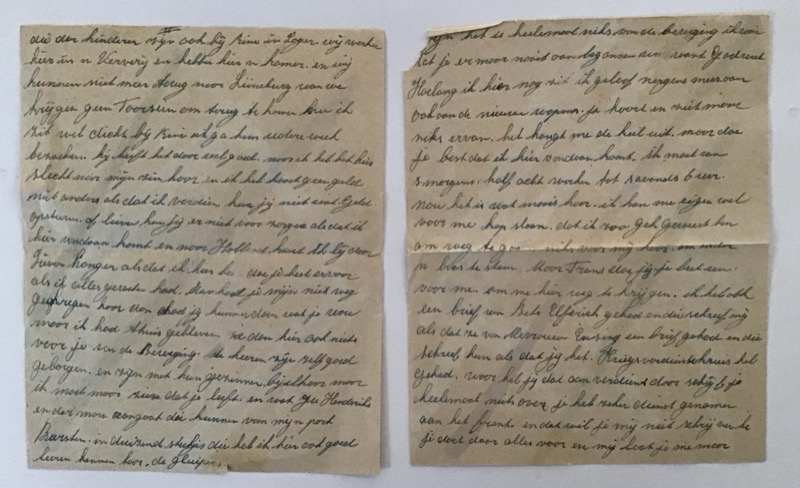 die der kinderen zijn ook bij Rine in Loger. wij werken
hier in n Ververij en hebben hier n kamer. en wij
kunnen niet meer terug naar Lüneburg van we
krijgen geen Toorsten om terug te komen. Ben ik
zit wel dichts bij Rine al ga hem iedere week
bezoeken. hij heeft het daar wel goed. maar ik heb het hier
slecht naar mijn zin hoor. en ik heb haast geen geld
niet anders als dat ik verdien kun jij niet wat Geld
opsturen of liever kun jij er niet voor zorgen als dat ik
hier vandaan komt en naar Holland kant
Liever Honger als dat ik hier ben. doe je best ervoor
als ik alles geweten had. dan had je mijn niet weg
gekregen hoor dan had jij kunnen doen wat je wou
maar ik had thuis gebleven. ze doen hier ook niets
voor je van de Beweging. de heeren zijn zelf goed
geborgen. en zijn met hun gezinnen bij elkaar maar
ik moet maar zien dat je leeft. en wat Ja Hendriks
en der man aangaat die kunnen van mijn part
Barsten. in duizend stukjes die heb ik hier ook goed
leeren kennen hoor. de gluipers
zijn het is heelemaal niks van de beweging ik wou
dat je er maar nooit aan begonnen was want God weet
Hoelang ik hier nog zit ik geloof nergens meer aan
ook aan de nieuwe wapens. je hoort en ziet maar
niks ervan. het hangt me de keel uit. maar doe
je best dat ik hier vandaan komt. ik moet van
smorgens. half acht werken tot savonds 6 uur.
nou het is wat moois hoor. ik kan me eigen wel
voor me kop slaan. dat ik zoo gek geweest ben
om weg te gaan niks voor mij hoor. om onder
je baas te staan. Maar Frans doe jij je best een
voor me. om me hier weg te krijgen. ik heb ook
een brief van Bets Elferich gehad en die schreef mij
als dat ze van Mevrouw Ensing een brief gehad en die
schreef hun als dat jij het. Kriegsverdienstkreuz heb
gehad. waar heb jij dat aan verdient daar schrijf je
heelemaal niets over. je heb zeker dienst genomen
aan het front. en dat wil je mij niet schrijven he
je doet daar alles voor en mij laat je me maar